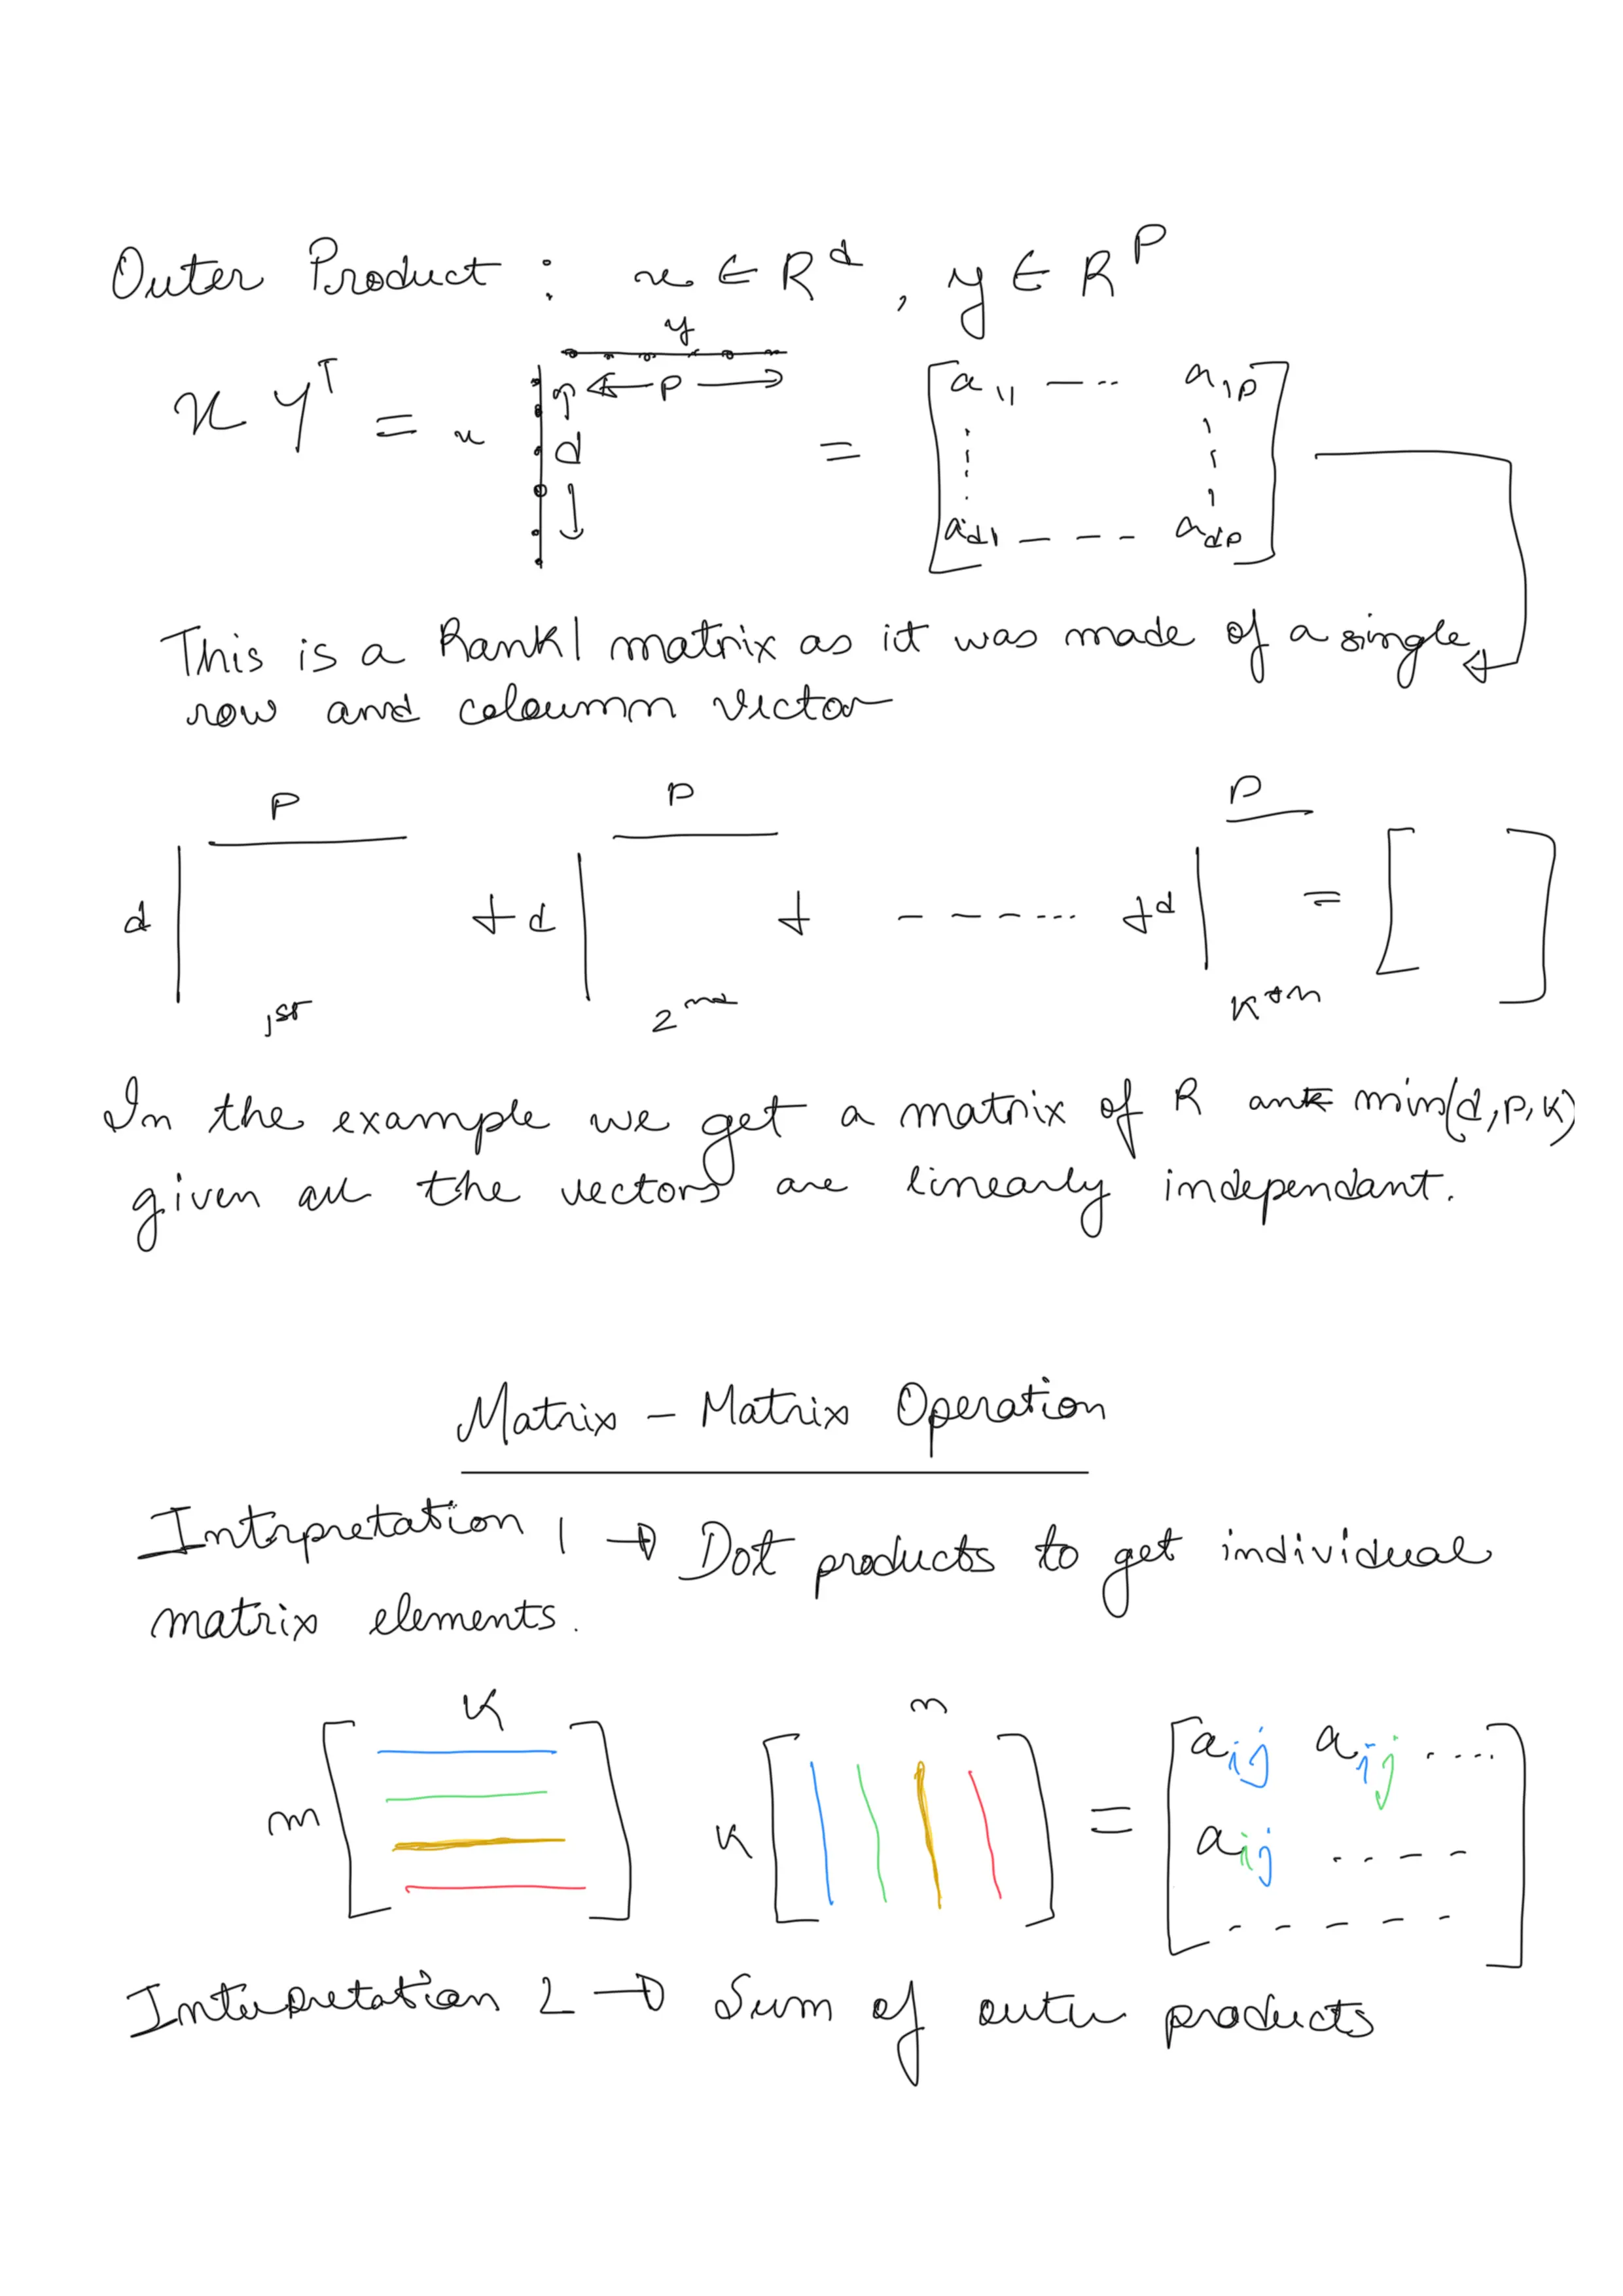 Outer Product : x ∈ R^d , y ∈ R^P
y
x Y^T = x d ← P → = [ a11 --- a1p
ad1 --- adp ]
This is a Rank 1 matrix as iit was made of a single
row and coloumn vector
P P P
d + d + ------- + d = [ ]
1st 2nd Kth
In the example we get a matrix of R ank min(d,p,K)
given all the vectors are linearly independant.
Matrix - Matrix Operation
Intrpretation 1 → Dot products to get individual
matrix elements.
K n
m [ ] K [ ] = [ aij aij ....
aij .....
- - - - - ]
Interpretation 2 → Sum of outer products